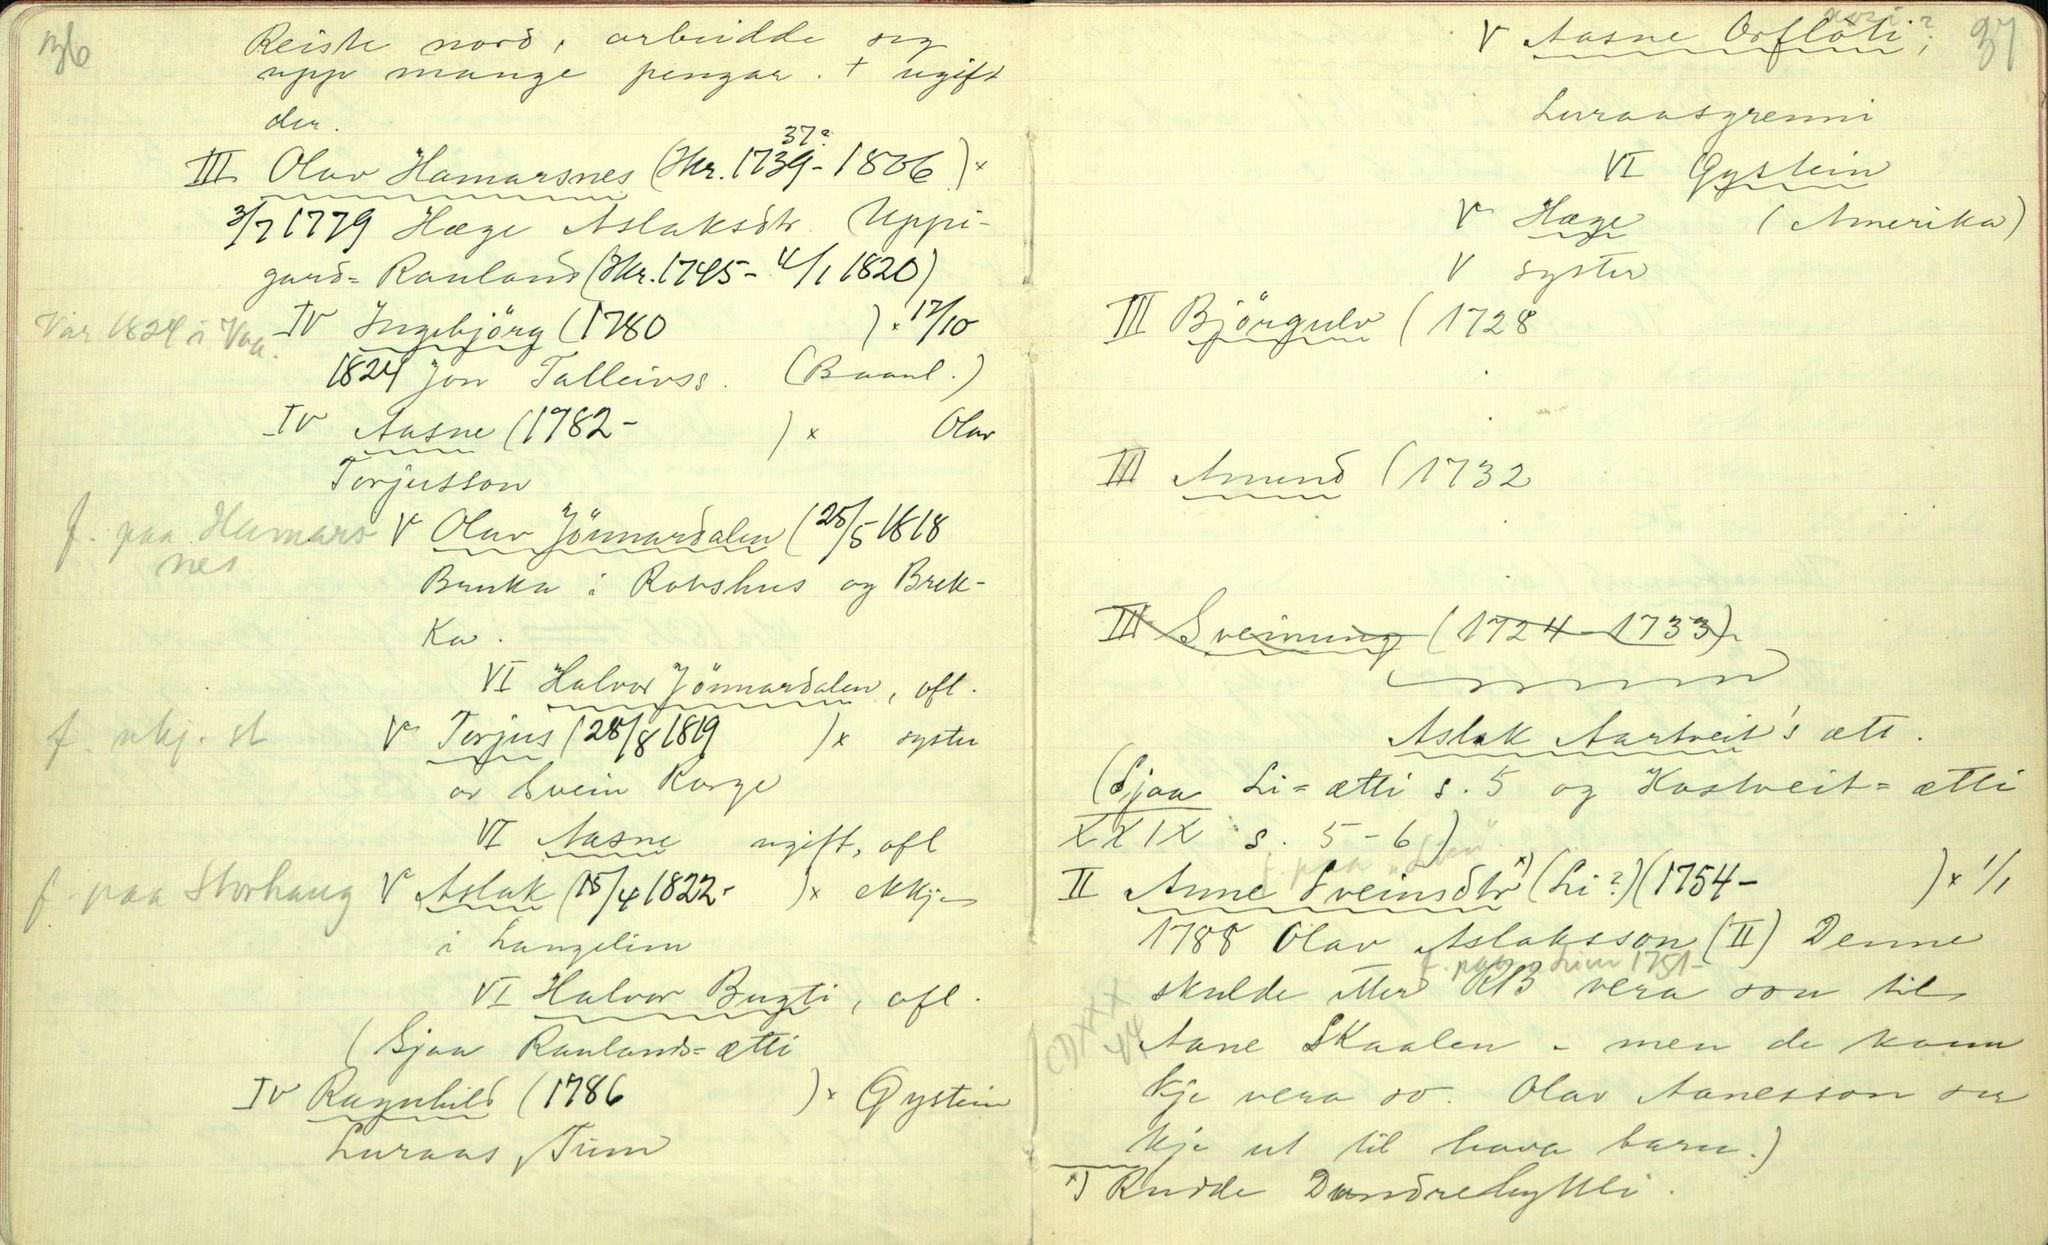 36
Reiste nord, arbeidde seg
upp mange pengar. + ugift
der.
37?
III Olav Hamarsnes (Kr. 1739 - 1806) ×
3/7 1779 Hæge Aslaksdtr. Uppi-
gard= Rauland (Kr. 1745 - 4/1 1820)
Var 1824 i Vaa.
IV Ingebjörg (1780 ) × 17/10
1824 Jon Talleivss. (Baanl.)
IV Aasne (1782 - ) × Olav
Torjusson
f. paa Hamars
nes
V Olav Jönnardalen (25/5 1818
Bruka i Rovshus og Brek-
ka.
VI Halvor Jönnardalen, ofl.
f. nkj. st
V Torjus (28/8 1819 ) × syster
av Svein Korge
VI Aasne ugift, ofl
f. paa Storhaug
V Aslak (15/4 1822 - ) × ekkja
i Langelim
VI Halvor Bugti, ofl.
(Sjaa Raulands=ætti
IV Ragnhild (1786 ) × Gystein
Luraas, Tinn
37
V Aasne Orflöti;
Luraasgrenni
VI Gystein
V Hæge (Amerika)
V syster
III Björgulv (1728
III Amund (1732
III Sveinung (1724 - 1733)
Aslak Aartveit's ætt.
(Sjaa Li=ætti s. 5 og Kostveit=ætti
XXIX s. 5-6)
f. paa
II Anne Sveinsdtr ×) (Li?) (1754 - ) × 1/1
1788 Olav Aslaksson (II) Denne
f. paa 1751-
skulde etter KB vera son til
XXX
44
Aane Skaalen - men de kann
kje vera so. Olav Aanesson ser
kje ut til hava barn.)
×) Rudde Dundrehyttli.